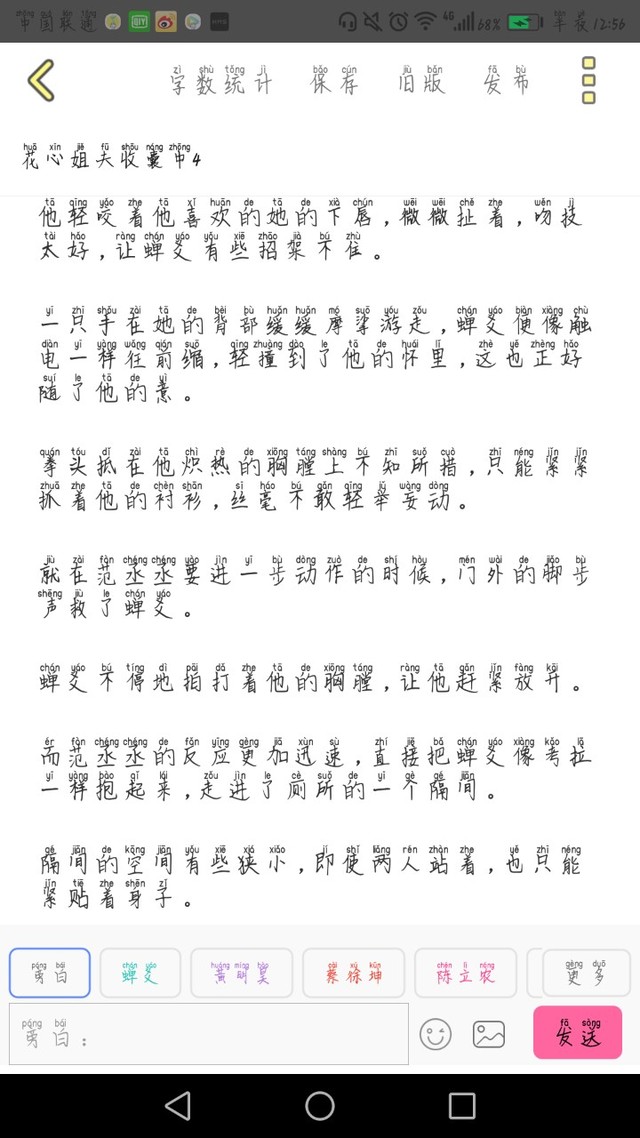 中国联通 4G 68% 半夜12:56
字数统计 保存 旧版 发布
花心姐夫收囊中4
他轻咬着他喜欢的她的下唇，微微扯着，吻技
太好，让蝉爻有些招架不住。
一只手在她的背部缓缓摩挲游走，蝉爻便像触
电一样往前缩，轻撞到了他的怀里，这也正好
随了他的意。
拳头抵在他炽热的胸膛上不知所措，只能紧紧
抓着他的衬衫，丝毫不敢轻举妄动。
就在范丞丞要进一步动作的时候，门外的脚步
声救了蝉爻。
蝉爻不停地拍打着他的胸膛，让他赶紧放开。
而范丞丞的反应更加迅速，直接把蝉爻像考拉
一样抱起来，走进了厕所的一个隔间。
隔间的空间有些狭小，即使两人站着，也只能
紧贴着身子。
旁白 蝉爻 黄明昊 蔡徐坤 陈立农 更多
旁白： 发送